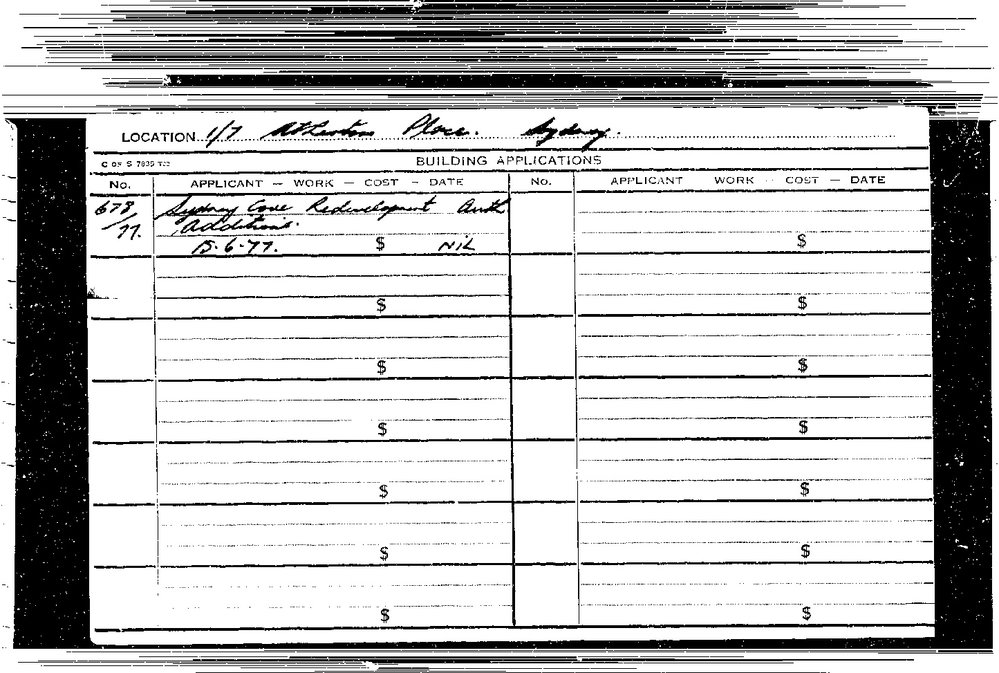 LOCATION 1/7 Atherton Place. Sydney.
C OF S 7835
BUILDING APPLICATIONS
No. APPLICANT — WORK — COST — DATE No. APPLICANT WORK COST — DATE
673/77. Sydney Cove Redevelopment Auth.
Additions.
15.6.77. $ NIL $
$ $
$ $
$ $
$ $
$ $
$ $